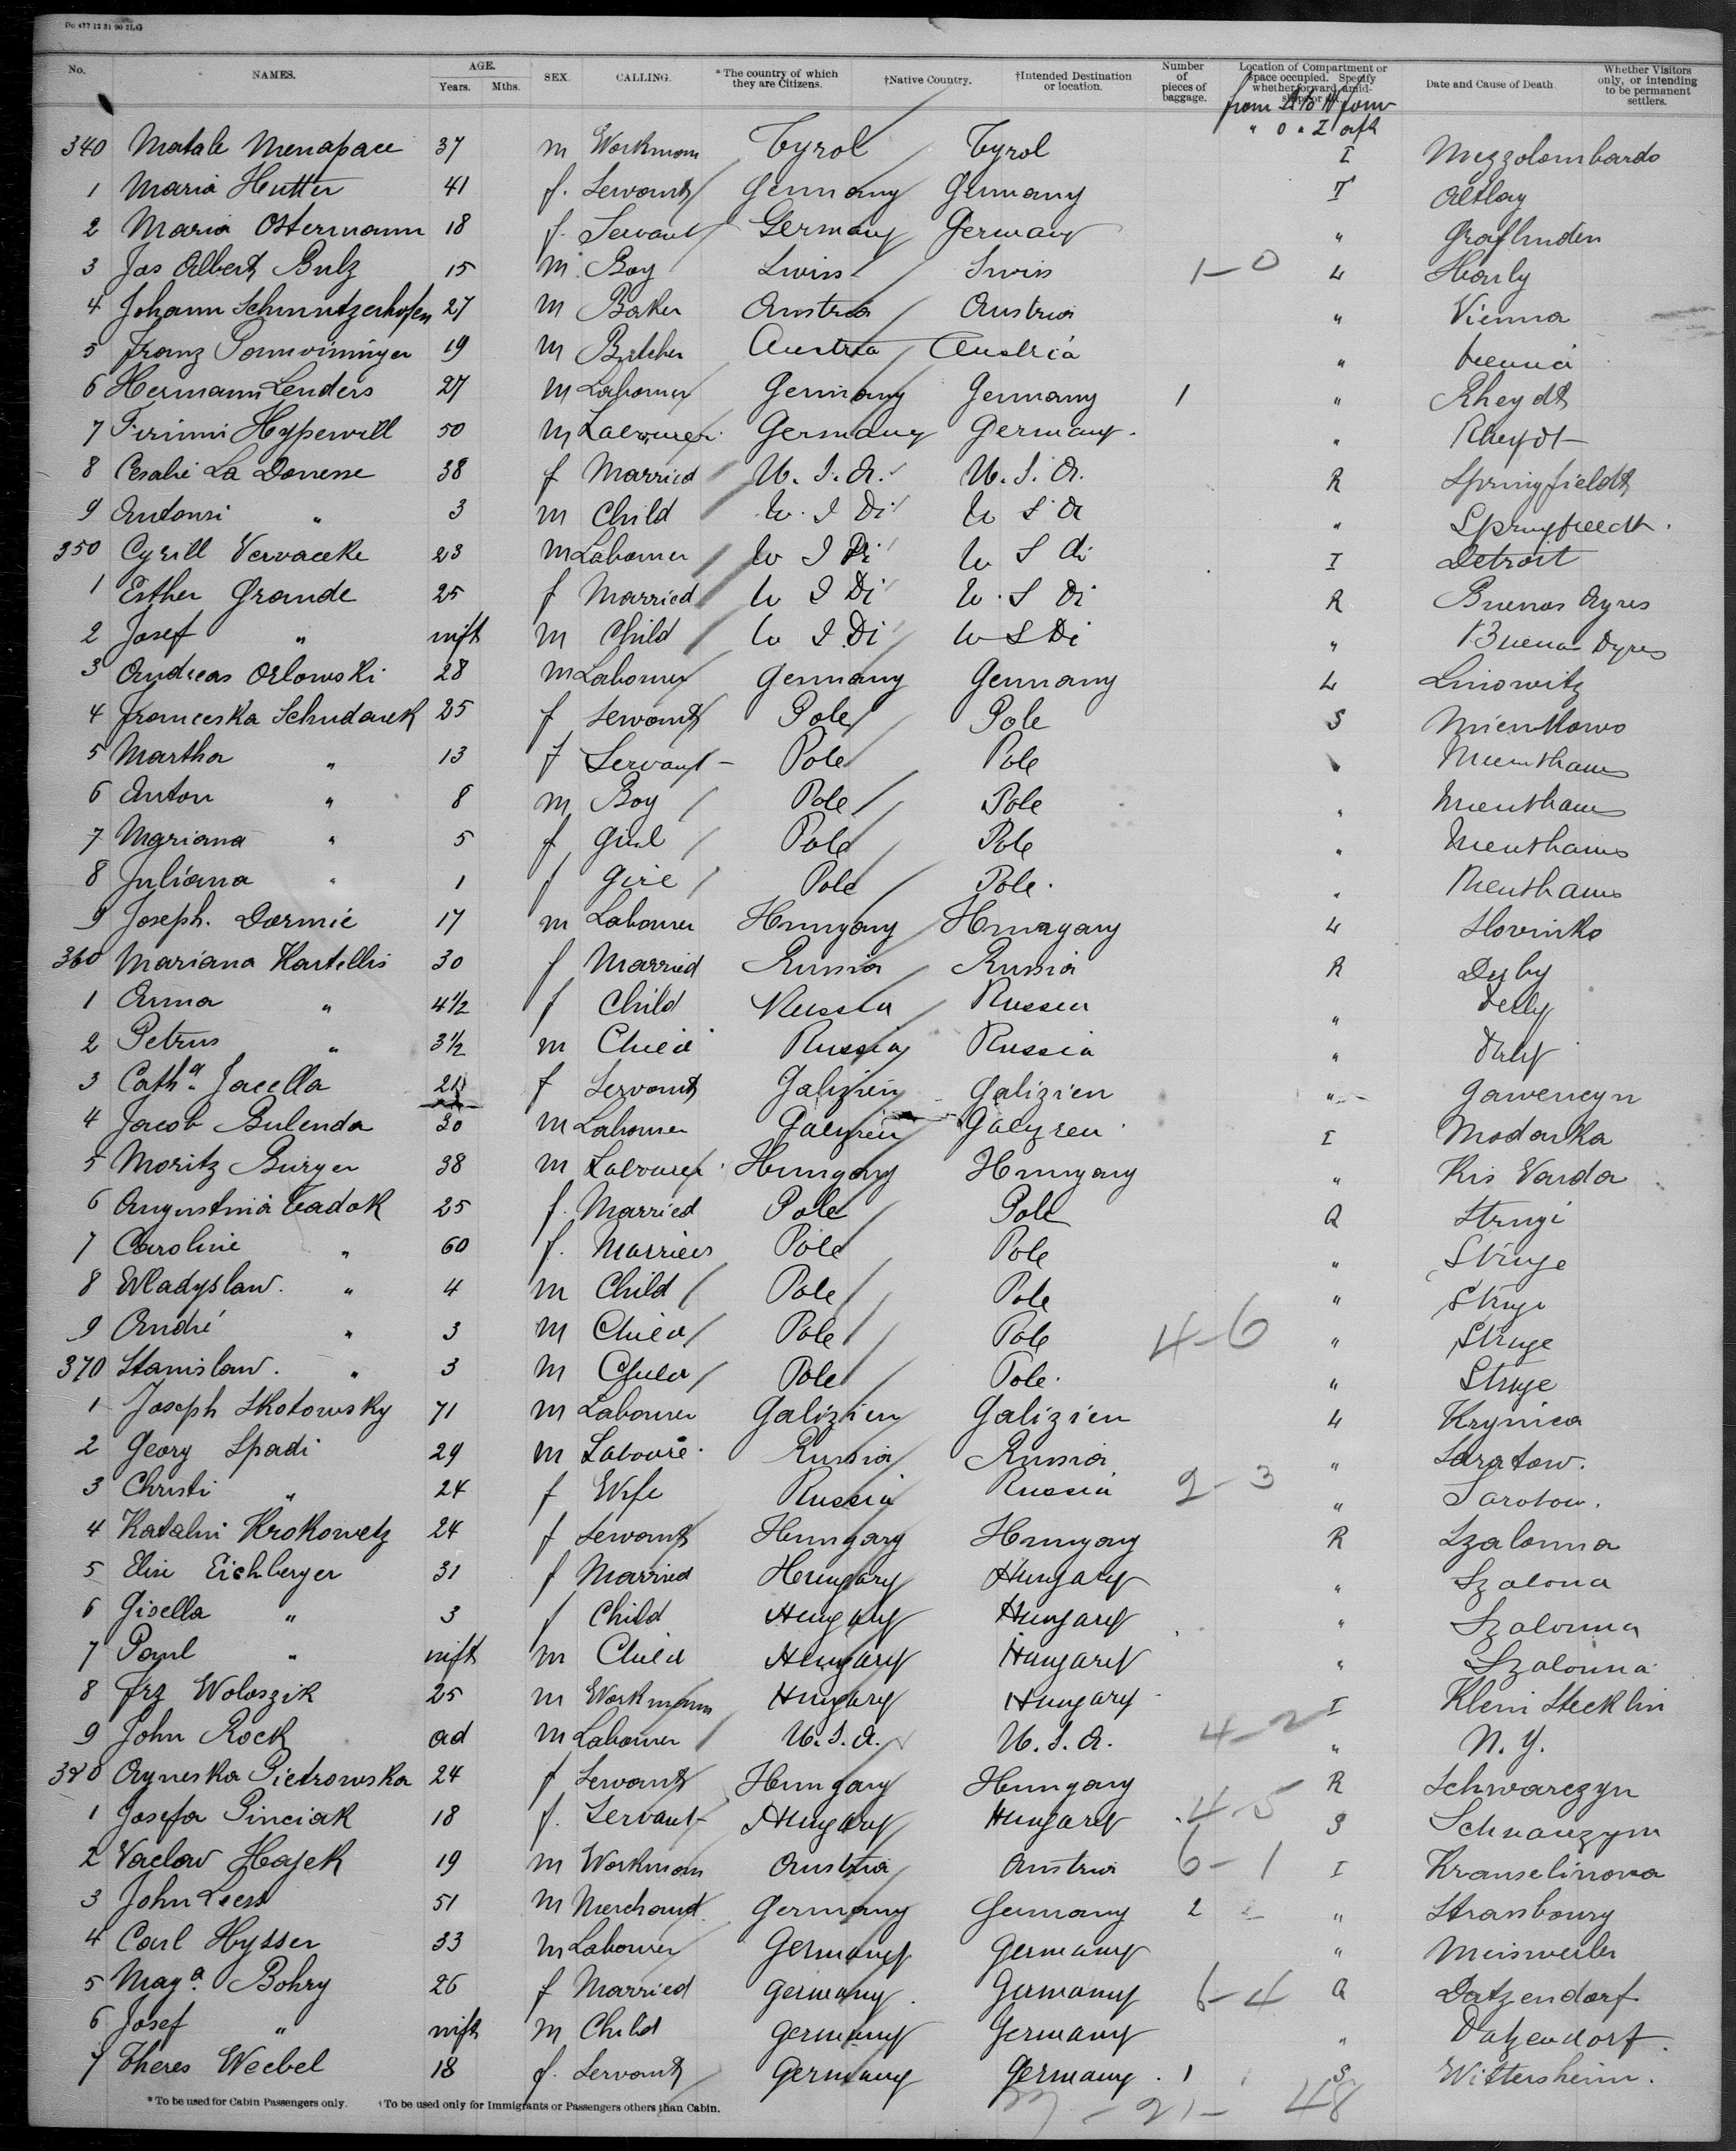 No. NAMES. AGE. Years. Mths. SEX. CALLING. *The country of which they are Citizens. †Native Country. †Intended Destination or location. Number of pieces of baggage. Location of Compartment or space occupied. Specify whether forward, amidships or aft. Date and Cause of Death. Whether Visitors only, or intending to be permanent settlers.
from to forw
" O " I aft
340 Natale Menapace 37 m Workman Tyrol Tyrol I Mezzolombardo
1 Maria Hutter 41 f. Servant Germany Germany I Altlay
2 Maria Ostermann 18 f. Servant Germany Germany "
3 Jos Albert Bulz 15 m Boy Swiss Swiss 1-0 4
4 Johann Schmutzerhofen 27 m Baker Austria Austria " Vienna
5 Franz 19 m Butcher Austria Austria "
6 Hermann Lenders 27 m Labourer Germany Germany 1 " Rheydt
7 Hypewill 50 m Labourer Germany Germany. " Rheydt
8 La Donesse 38 f Married U.S.A. U.S.A. R Springfieldt
9 Antonri " 3 m Child U S A U S A "
350 Cyrill Vervaecke 23 m Labourer U S A U S A I Detroit
1 Esther Grande 25 f Married U S A U. S A R Buenos Ayres
2 Josef " inft m Child U S A U S A " Buenos Ayres
3 Andreas Orlowski 28 m Labourer Germany Germany 4 Linowitz
4 Franceska Schudarek 25 f Servant Pole Pole S Mienkowo
5 Martha " 13 f Servant Pole Pole "
6 Anton " 8 m Boy Pole Pole "
7 Mariana " 5 f Girl Pole Pole "
8 Juliana " 1 f Girl Pole Pole. "
9 Joseph. Dormic 17 m Labourer Hungary Hungary 4 Slovinko
360 Mariana Kartellis 30 f Married Russia Russia R Derby
1 Anna " 4½ f Child Russia Russia "
2 Petrus " 3½ m Child Russia Russia "
3 Cathª. Jacella 21 f Servant Galizien Galizien " Gawencyn
4 Jacob Bulenda 30 m Labourer Galizien Galizien I Modarka
5 Moritz Burger 38 m Labourer Hungary Hungary " Kis Varda
6 Augustina Cadok 25 f. Married Pole Pole Q Strugi
7 Caroline " 60 f. Married Pole Pole " Struge
8 Wladyslaw. " 4 m Child Pole Pole " Struge
9 André " 3 m Child Pole Pole 4-6 " Struge
370 Stanislaw. " 3 m Child Pole Pole. " Struge
1 Joseph Skotowsky 71 m Labourer Galizien Galizien 4 Krynica
2 Georg Spadi 29 m Laboure. Russia Russia " Saratow.
3 Christi " 24 f Wife Russia Russia 2-3 " Sarotow.
4 Katalni Krokowetz 24 f Servant Hungary Hungary R Szalonna
5 Elise Eichberger 31 f Married Hungary Hungary " Szalona
6 Gisella " 3 f Child Hungary Hungary " Szalonna
7 Paul " inft m Child Hungary Hungary " Szalonna
8 Frz Woloszik 25 m Workmann Hungary Hungary I Klein Stecklin
9 John Rock ad m Labourer U.S.A. U.S.A. 4-2 " N. Y.
380 Agneska Pietrowska 24 f Servant Hungary Hungary R Schwarczyn
1 Josefa Pinciak 18 f. Servant Hungary Hungary 4-5 S
2 Vaclav Hajek 19 m Workman Austria Austria 6-1 I Kranselinova
3 John Leess 51 m Merchant Germany Germany 2 " Strassbourg
4 Carl Hysser 33 m Labourer Germany Germany " Meisweiler
5 Magª. Bohry 26 f Married Germany Germany 6-4 Q Datzendorf
6 Josef " inft m Child Germany Germany " Datzendorf.
7 Theres Weebel 18 f. Servant Germany Germany 1 S Wittersheim.
*To be used for Cabin Passengers only. †To be used only for Immigrants or Passengers others than Cabin. - 21 - 48